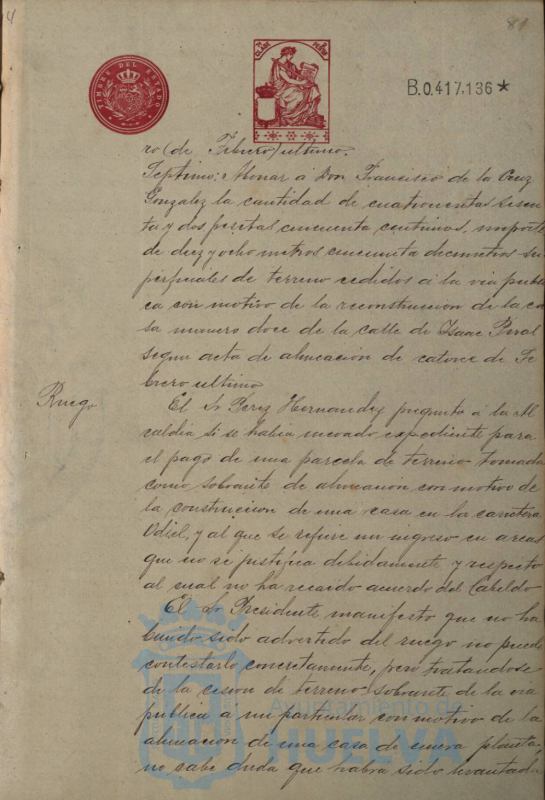 4
81
TIMBRE DEL ESTADO
B.0.417,136*
ro (de Febrero) ultimo.
Septimo: Abonar a Don Francisco de la Cruz
Gonzalez la cantidad de cuatrocientas sesen
ta y dos pesetas cincuenta centimos, importe
de diez y ocho metros cincuenta decimetros su
perficiales de terreno cedidos á la via publi
ca con motivo de la reconstruccion de la ca
sa numero doce de la calle de Isaac Peral
segun acta de alineacion de catorce de Fe
brero ultimo
Ruego
El Sr Perez Hernandez pregunto a la Al
caldia si se habia incoado expediente para
el pago de una parcela de terreno tomada
como sobrante de alineacion con motivo de
la construccion de una casa en la carretera
Odiel, y al que se refiere un ingreso en arcas
que no se justifica debidamente y respecto
al cual no ha recaido acuerdo del Cabildo
El Sr Presidente manifesto que no ha
biendo sido advertido del ruego no puede
contestarlo concretamente, pero tratandose
de la cesion de terreno sobrante de la via
publica a un particular con motivo de la
alineacion de una casa de nueva planta,
no cabe duda que habra sido levantada
Ayuntamiento de
HUELVA